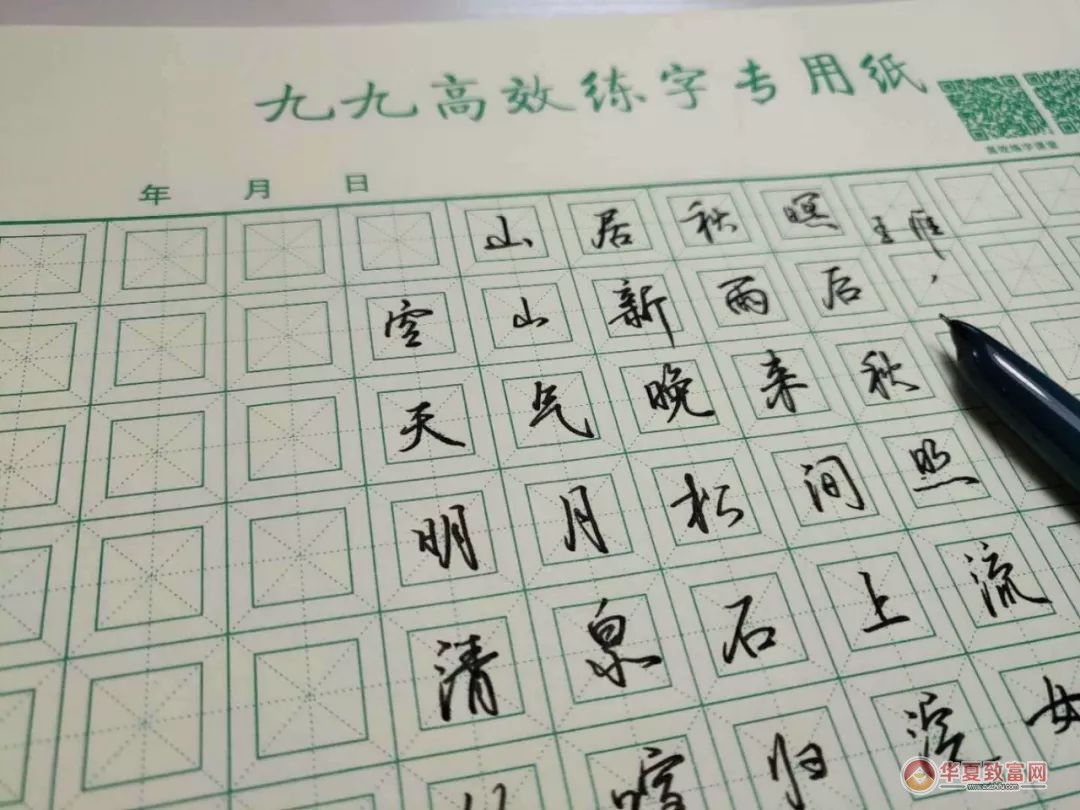 九九高效练字专用纸
高效练字课堂
年 月 日
山居秋暝 王维
空山新雨后,
天气晚来秋
明月松间照
清泉石上流
竹喧归浣女
华夏致富网